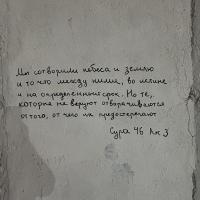 Мы сотворили небеса и землю
и то что между ними, во истине
и на определенный срок. Но те,
которые не веруют отворачиваются
от того, от чего их предостерегают
Сура 46 Ах 3